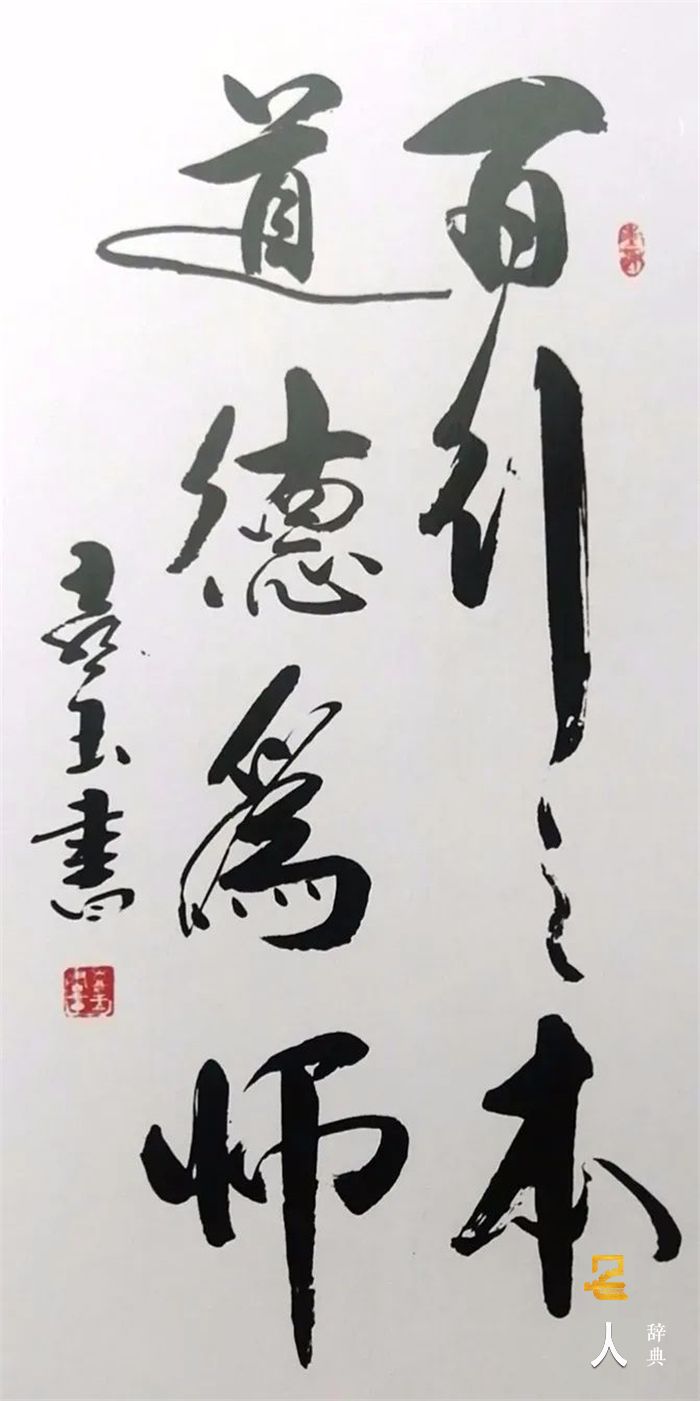 百行之本
道德為师
喜玉書
名人
辞典